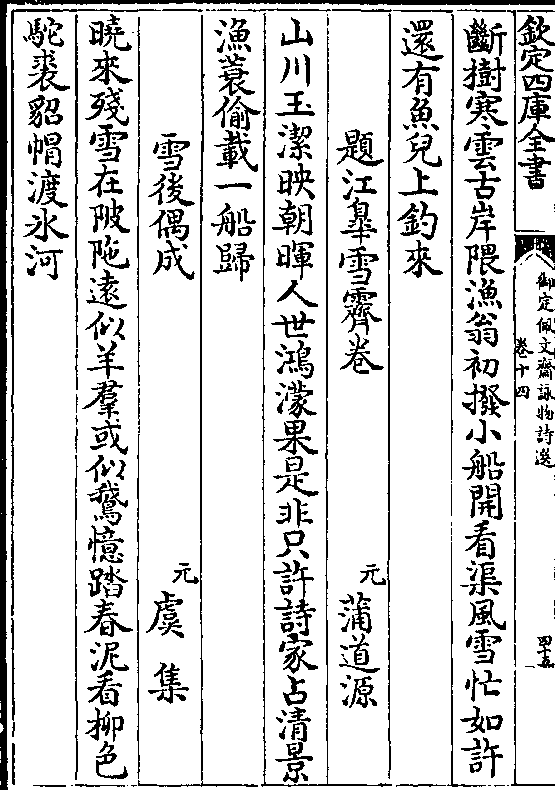 欽定四庫全書
御定佩文齋詠物詩選
卷十四
斷樹寒雲古岸隈漁翁初撥小船開看渠風雪忙如許
還有魚兒上釣來
題江皐雪霽卷
元
蒲道源
山川玉潔映朝暉人世鴻濛果是非只許詩家占清景
漁蓑偷載一船歸
雪後偶成
元
虞集
曉來殘雪在陂陁遠似羊羣或似鵞憶踏春泥看柳色
駝裘貂帽渡冰河